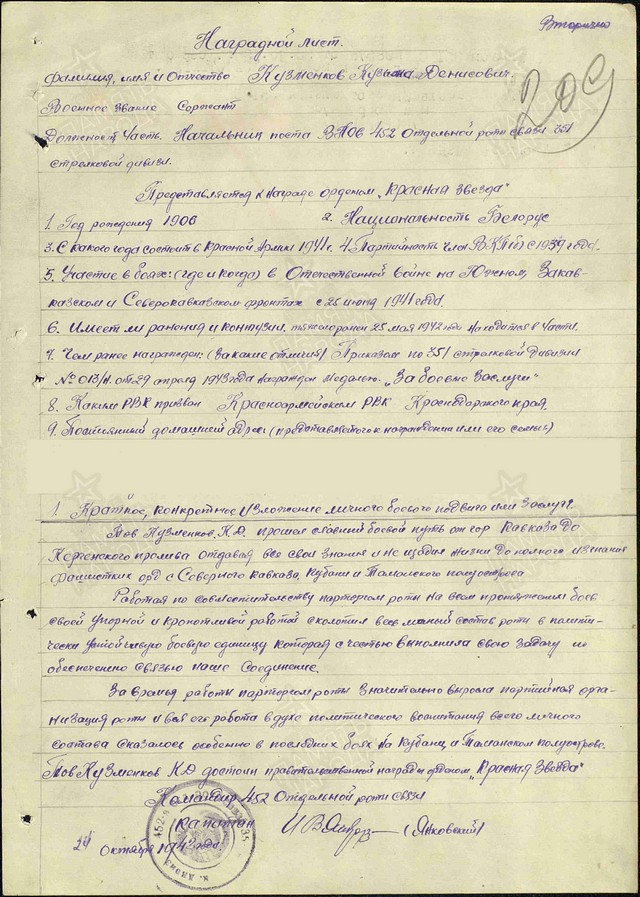 Вторично
209
Наградной лист.
Фамилия, имя и Отчество Кузменков Кузьма Денисович.
Военное звание Сержант
Должность, Часть. Начальник поста ВНОС 452 Отдельной роти связи 351
стрелковой дивизи.
Представляется к награде орденом „Красная звезда"
1. Год рождения 1906 2. Национальность Белорус
3. С какого года состоит в Красной Армии 1941 г. 4. Партийность член ВКП(б) с 1939 года.
5. Участие в боях: (где и когда) в Отечественной войне на Южном, Закав-
казском и Северокавказском фронтах с 25 июня 1941 года.
6. Имеет ли ранения и контузии, тяжело ранен 25 мая 1942 года находится в Части.
7. Чем ранее награжден: (за какие отличия) Приказом по 351 стрелковой Дивизии
№ 013/н. от 29 апреля 1943 года награжден медалью. „За боевые заслуги"
8. Каким РВК призван Красноармейском РВК Краснодарского края.
9. Постоянный домашний адрес (представляемого к награждении или его семьи)
1. Краткое, конкретное изложение личного боевого подвига или заслуг.
Тов Кузменков, К.Д. прошел славный боевой путь от гор Кавказа до
Керченского пролива отдавая все свои знания и не щадил жизни до полного изгнания
фашистких орд с Северного Кавказа, Кубани и Таманского полуострова
Работая по совместительству парторгом роты на всем протяжении боев
своей упорной и кропотливой работой сколотил весь личный состав роти в полити-
чески устойчивую боевую единицу которая с честью выполнила свою задачу по
обеспечению связью наше Соединение.
За время работы парторгом роты значительно выросла партийная орга-
низация роты и вся его работа в духе политического воспитания всего личного
состава сказалось особенно в последних боях на Кубани и Таманском полуострове.
Тов Кузменков К.Д достоин правительственной награды орденом „Красная Звезда"
Командир 452 Отдельной роти связи
Капитан (Янковский)
октября 1943 года.